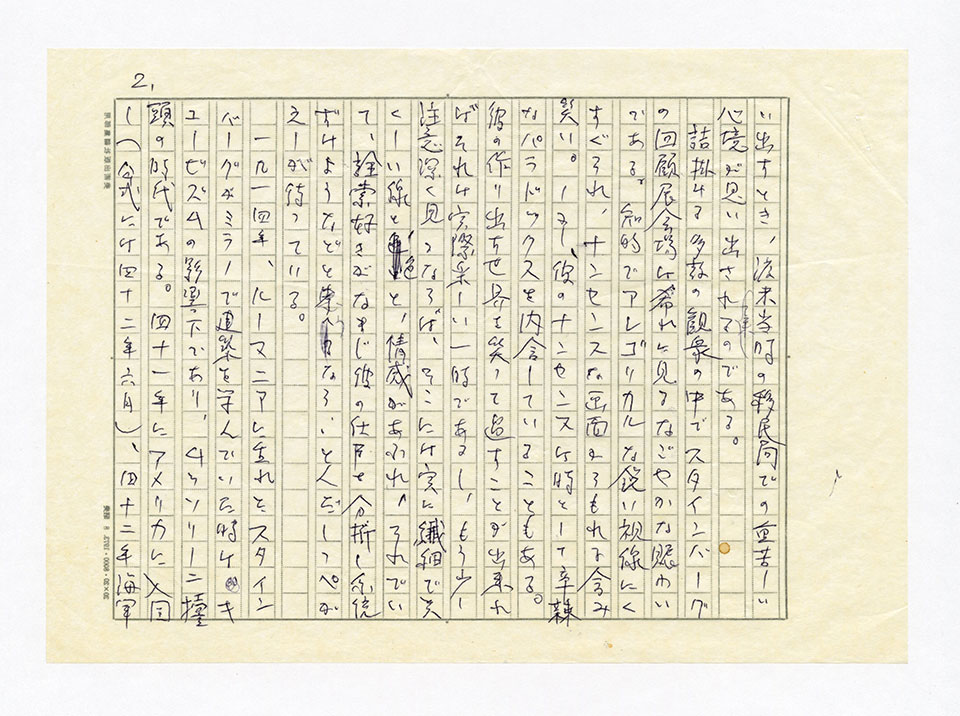 2.
い出すとき、渡米当時の移民局での重苦しい
心境が思い出されるのである。
詰掛ける多数の観衆の中でスタインバーグ
の回顧展会場は希れに見るなごやかな賑わい
である。知的でアレゴリカルな鋭い視線にく
すぐられ、ナンセンスな画面からもれる含み
笑い。しかし、彼のナンセンスは時として辛辣
なパラドックスを内含していることもある。
彼の作り出す世界を笑って過すことが出来れ
ばそれは実際楽しい一時であるし、もう少し
注意深く見るならば、そこには実に繊細で美
くしい線と色と、情感があふれ、それでい
て、詮索好きがなまじ彼の仕事を分析し系統
ずけようなどと なら、とんだしっぺが
えしが待っている。
一九一四年、ルーマニアに生れたスタイン
バーグがミラノで建築を学んでいた時は キ
ュービズムの影響下であり、ムッソリーニ擡
頭の時代である。四十一年にアメリカに入国
し(公式には四十二年六月)、四十二年海軍